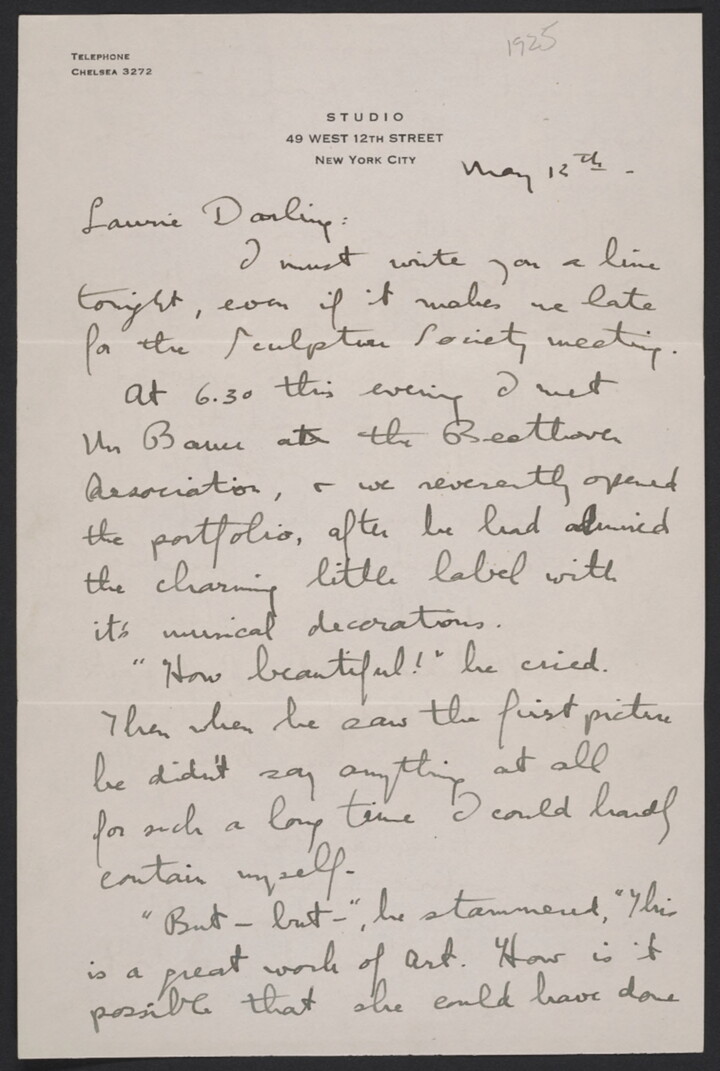 1925
TELEPHONE
CHELSEA 3272
STUDIO
49 WEST 12TH STREET
NEW YORK CITY
May 12th -
Laurie Darling:
I must write you a line
tonight, even if it makes me late
for the Sculpture Society meeting.
At 6.30 this evening I met
Mr Bauer at the Beethoven
Association, & we reverently opened
the portfolio, after he had admired
the charming little label with
it's musical decorations.
"How beautiful!" he cried.
Then when he saw the first picture
he didn't say anything at all
for such a long time I could hardly
contain myself -
"But - but -", he stammered, "This
is a great work of Art. How is it
possible that she could have done